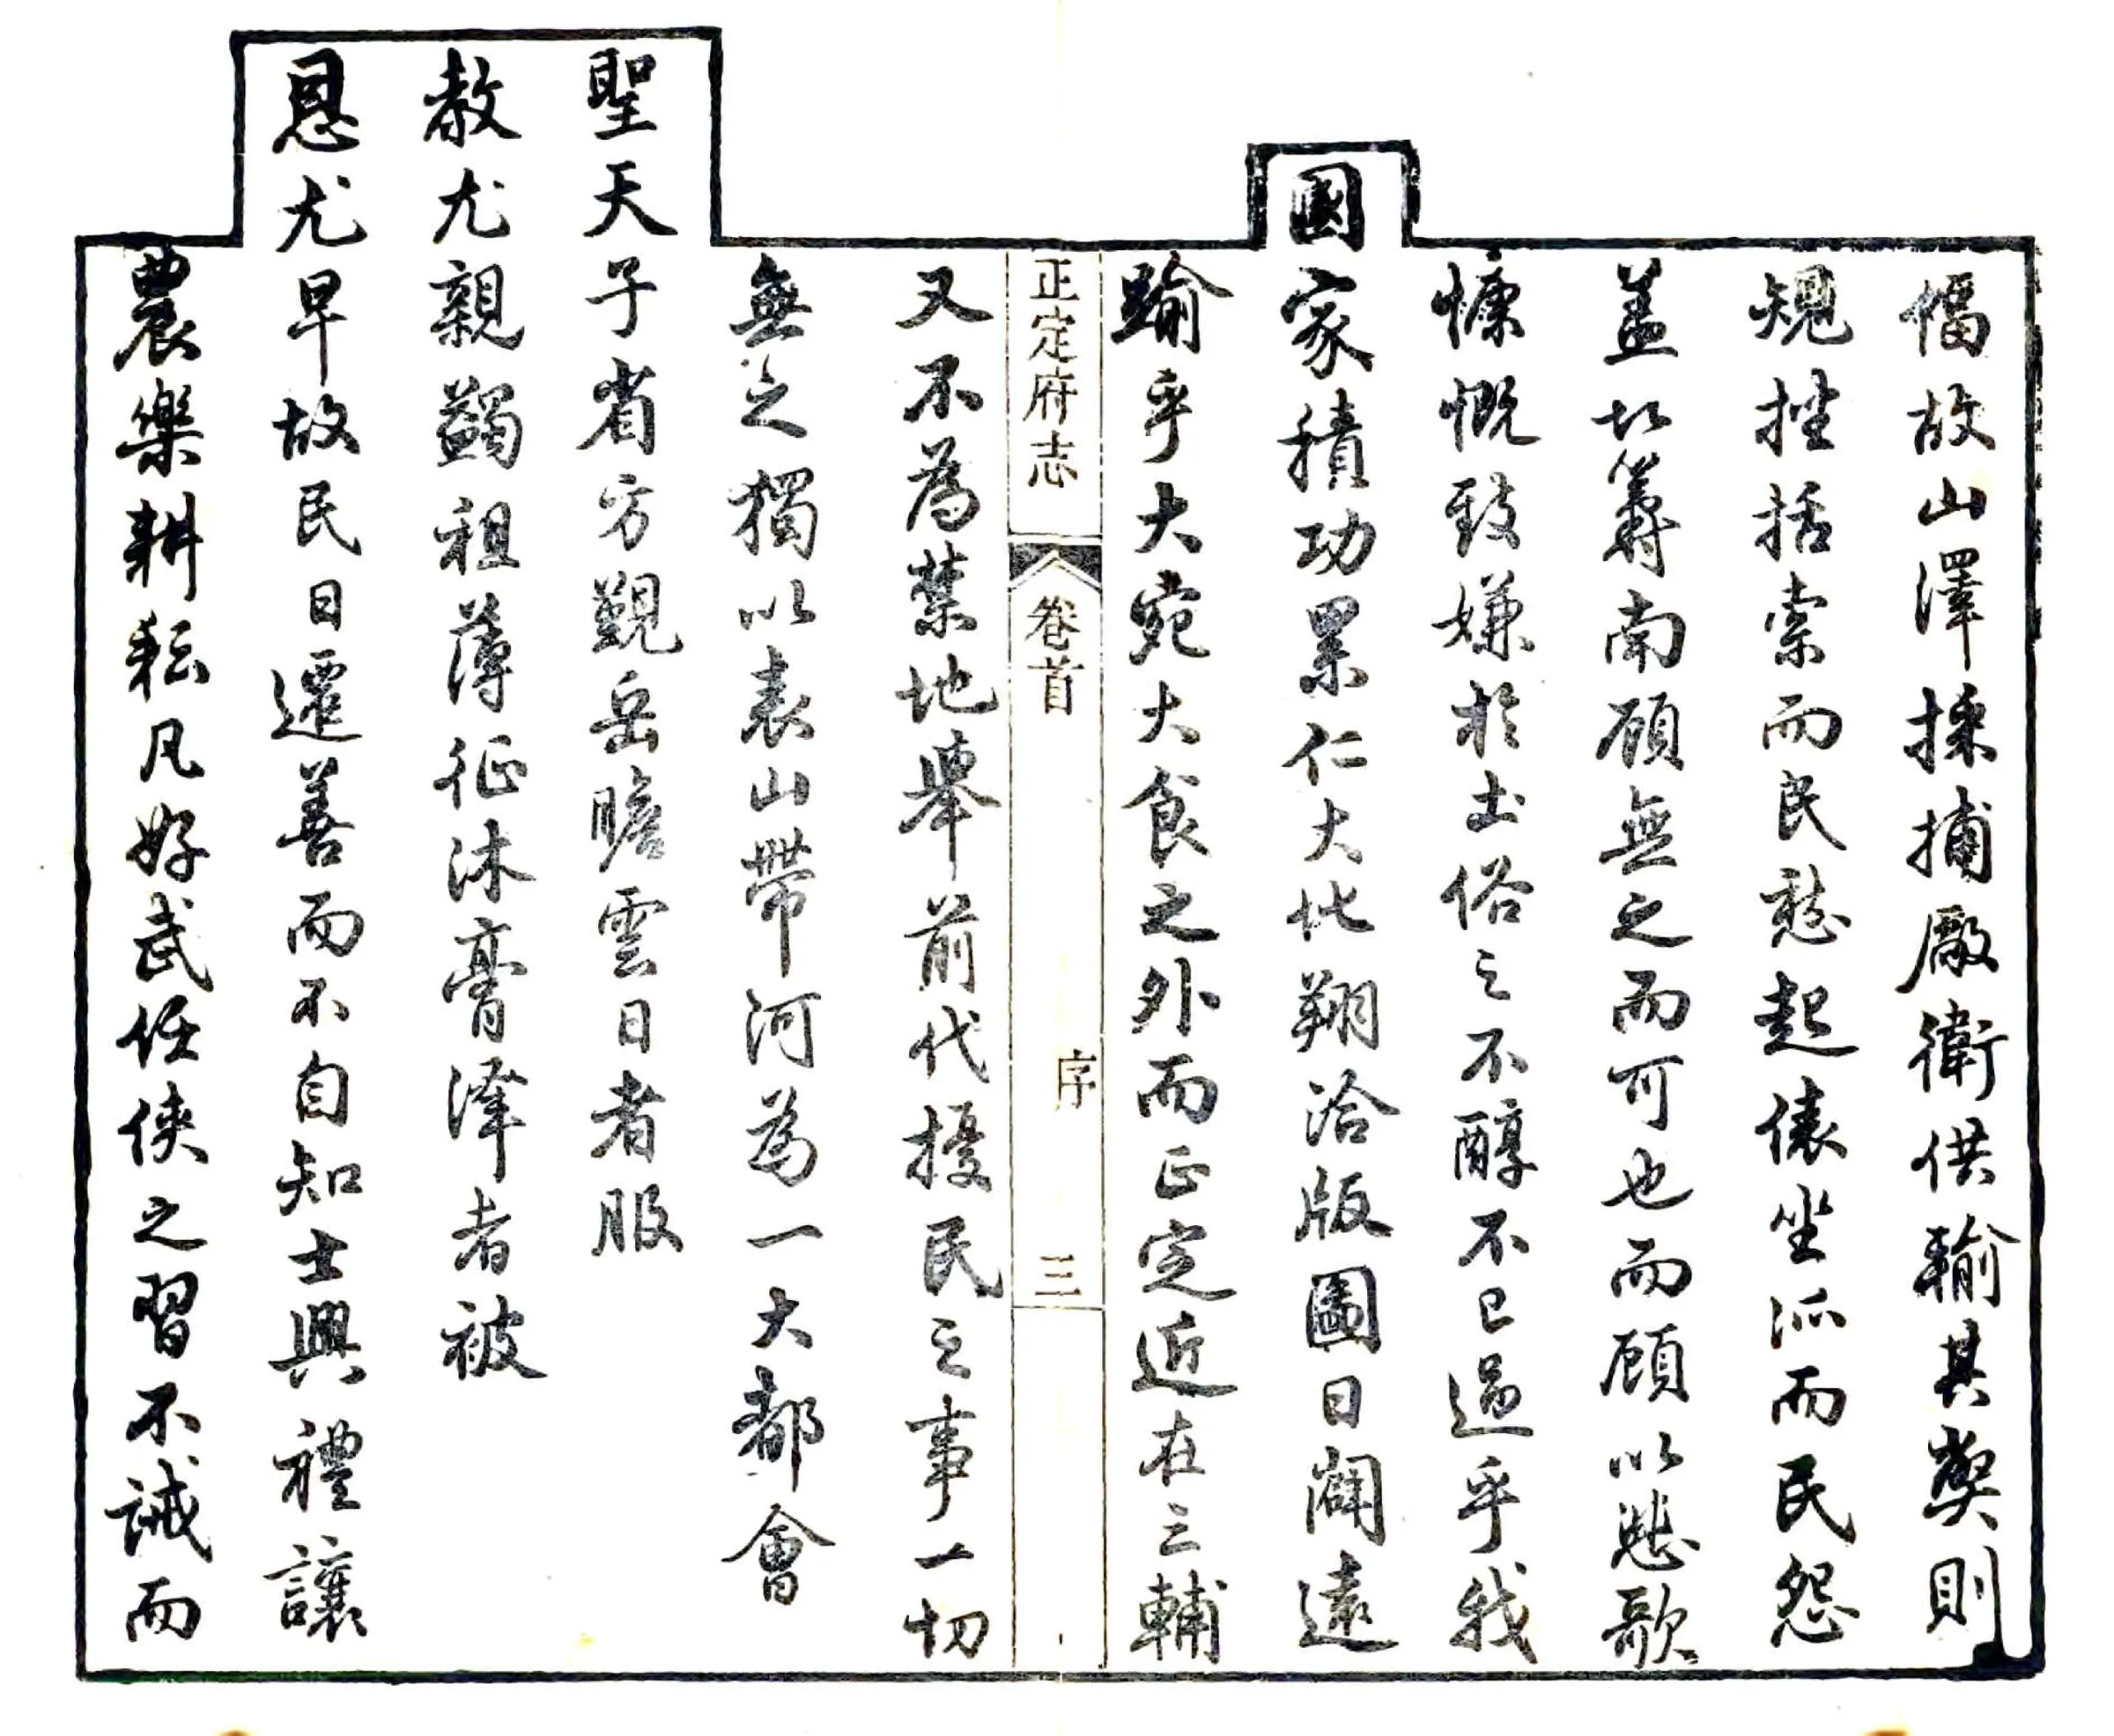 愊故山澤採捕廠衛供輸其獘則
規挫括索而民愁起俵坐派而民怨
蓋以籌南顧無之而可也而顧以悲歌
慷慨致嫌於土俗之不醇不已過乎我
國家積功累仁大地翔洽版圖日闢遠
踰乎大宛大食之外而正定近在三輔
正定府志
卷首
序
三
又不為禁地舉前代擾民之事一切
無之獨以表山帶河為一大都會
聖天子省方觀岳瞻雲日者服
教尤親蠲租薄征沐膏澤者被
恩尤早故民日遷善而不自知士興禮讓
農樂耕耘凡好武任俠之習不誡而